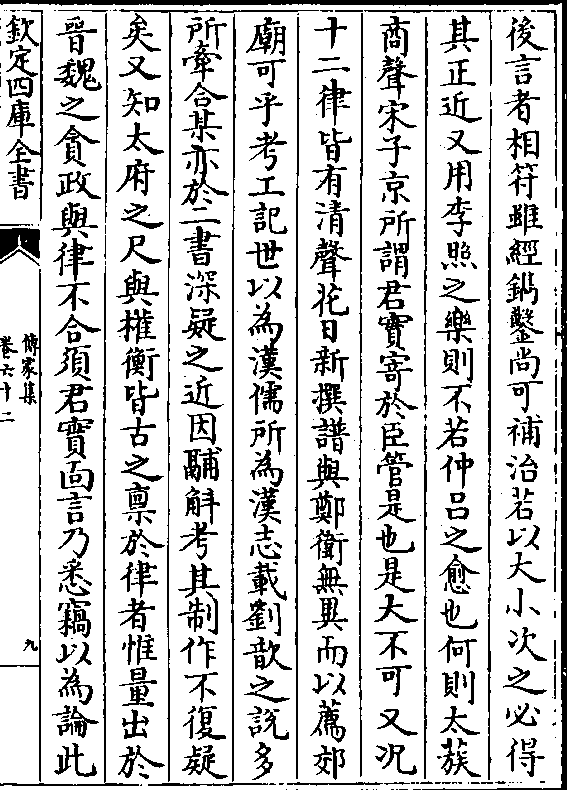 後言者相符雖經鐫鑿尚可補治若以大小次之必得
其正近又用李照之樂則不若仲呂之愈也何則太蔟
商聲宋子京所謂君實寄於臣管是也是大不可又况
十二律皆有清聲花日新撰譜與鄭衛無異而以薦郊
廟可乎考工記世以為漢儒所為漢志載劉歆之說多
所牽合某亦於二書深疑之近因鬴斛考其制作不復疑
矣又知太府之尺與權衡皆古之禀於律者惟量出於
晉魏之貪政與律不合須君實面言乃悉竊以為論此
欽定四庫全書
傳家集
卷六十二
九